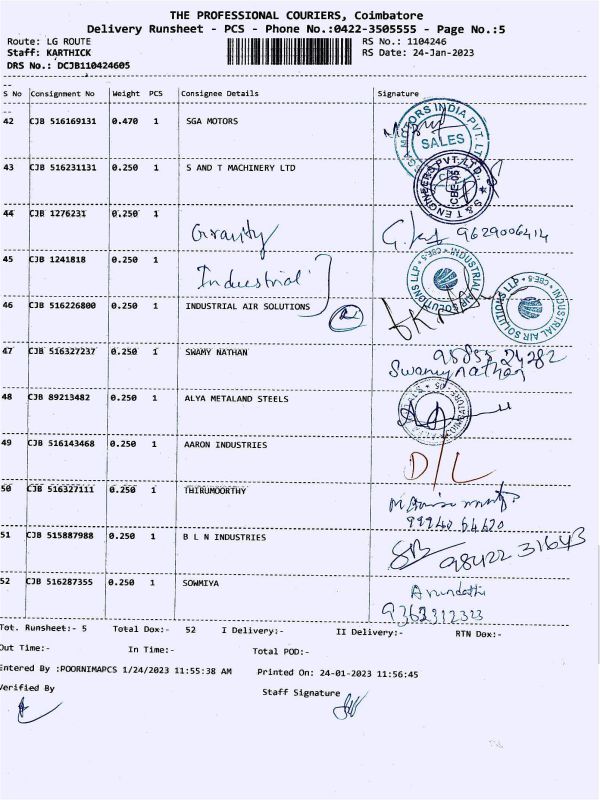 THE PROFESSIONAL COURIERS, Coimbatore
Delivery Runsheet - PCS - Phone No.:0422-3505555 - Page No.:5
Route: LG ROUTE RS No.: 1104246
Staff: KARTHICK RS Date: 24-Jan-2023
DRS No.: DCJB110424605
S No Consignment No Weight PCS Consignee Details Signature
42 CJB 516169131 0.470 1 SGA MOTORS
SGA MOTORS INDIA PVT. LTD
SALES
43 CJB 516231131 0.250 1 S AND T MACHINERY LTD
S&T ENGINEERS PVT. LTD.
CBE-05
44 CJB 1276231 0.250 1 Gravity 9629006414
45 CJB 1241818 0.250 1 Industrial
INDUSTRIAL AIR SOLUTIONS LLP CBE-5
46 CJB 516226800 0.250 1 INDUSTRIAL AIR SOLUTIONS
INDUSTRIAL AIR SOLUTIONS LLP CBE-5
47 CJB 516327237 0.250 1 SWAMY NATHAN
Swamynathan
48 CJB 89213482 0.250 1 ALYA METALAND STEELS
49 CJB 516143468 0.250 1 AARON INDUSTRIES D/L
50 CJB 516327111 0.250 1 THIRUMOORTHY
99940 64620
51 CJB 515887988 0.250 1 B L N INDUSTRIES 98422 31643
52 CJB 516287355 0.250 1 SOWMIYA
Tot. Runsheet:- 5 Total Dox:- 52 I Delivery:- II Delivery:- RTN Dox:-
Out Time:- In Time:- Total POD:-
Entered By :POORNIMAPCS 1/24/2023 11:55:38 AM Printed On: 24-01-2023 11:56:45
Verified By Staff Signature